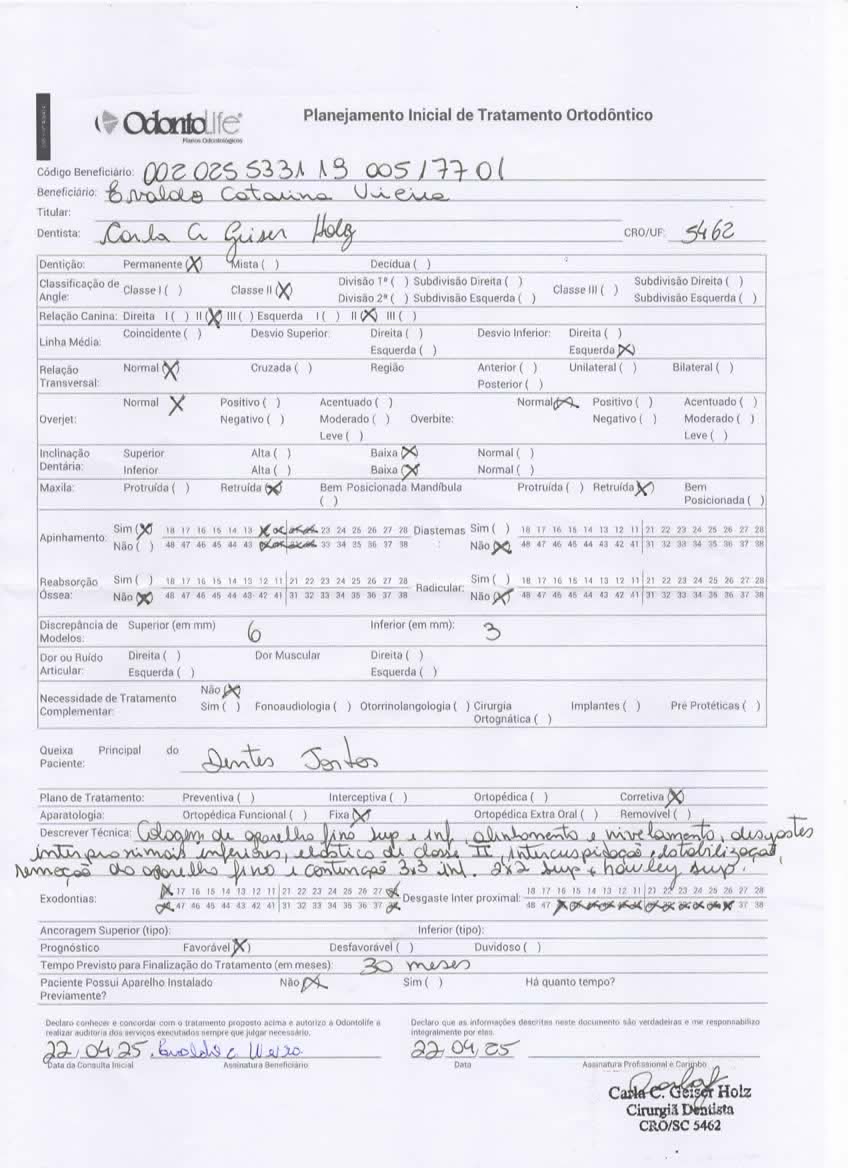 OdontoLife®
Planos Odontológicos
Planejamento Inicial de Tratamento Ortodôntico
Código Beneficiário: 002 025 5331 19 005 / 77 01
Beneficiário: Evaldo Catarina Vieira
Titular:
Dentista: Carla C Geiser Holz CRO/UF: 5462
Dentição: Permanente (X) Mista ( ) Decídua ( )
Classificação de Angle: Classe I ( ) Classe II (X) Divisão 1ª ( ) Subdivisão Direita ( ) Classe III ( ) Subdivisão Direita ( )
Divisão 2ª ( ) Subdivisão Esquerda ( ) Subdivisão Esquerda ( )
Relação Canina: Direita I ( ) II (X) III ( ) Esquerda I ( ) II (X) III ( )
Linha Média: Coincidente ( ) Desvio Superior: Direita ( ) Desvio Inferior: Direita ( )
Esquerda ( ) Esquerda (X)
Relação Transversal: Normal (X) Cruzada ( ) Região Anterior ( ) Unilateral ( ) Bilateral ( )
Posterior ( )
Overjet: Normal X Positivo ( ) Acentuado ( ) Overbite: Normal (X) Positivo ( ) Acentuado ( )
Negativo ( ) Moderado ( ) Negativo ( ) Moderado ( )
Leve ( ) Leve ( )
Inclinação Dentária: Superior Alta ( ) Baixa (X) Normal ( )
Inferior Alta ( ) Baixa (X) Normal ( )
Maxila: Protruída ( ) Retruída (X) Bem Posicionada ( ) Mandíbula Protruída ( ) Retruída (X) Bem Posicionada ( )
Apinhamento: Sim (X) 18 17 16 15 14 13 23 24 25 26 27 28 Diastemas: Sim ( ) 18 17 16 15 14 13 12 11 21 22 23 24 25 26 27 28
Não ( ) 48 47 46 45 44 43 33 34 35 36 37 38 Não (X) 48 47 46 45 44 43 42 41 31 32 33 34 35 36 37 38
Reabsorção Óssea: Sim ( ) 18 17 16 15 14 13 12 11 21 22 23 24 25 26 27 28 Radicular: Sim ( ) 18 17 16 15 14 13 12 11 21 22 23 24 25 26 27 28
Não (X) 48 47 46 45 44 43 42 41 31 32 33 34 35 36 37 38 Não (X) 48 47 46 45 44 43 42 41 31 32 33 34 35 36 37 38
Discrepância de Modelos: Superior (em mm) 6 Inferior (em mm): 3
Dor ou Ruído Articular: Direita ( ) Dor Muscular Direita ( )
Esquerda ( ) Esquerda ( )
Necessidade de Tratamento Complementar: Não (X)
Sim ( ) Fonoaudiologia ( ) Otorrinolangologia ( ) Cirurgia Ortognática ( ) Implantes ( ) Pré Protéticas ( )
Queixa Principal do Paciente: Dentes Tortos
Plano de Tratamento: Preventiva ( ) Interceptiva ( ) Ortopédica ( ) Corretiva (X)
Aparatologia: Ortopédica Funcional ( ) Fixa (X) Ortopédica Extra Oral ( ) Removível ( )
Descrever Técnica: Colagem de aparelho fixo sup e inf, alinhamento e nivelamento, desgastes
interproximais inferiores, elástico de classe II, intercuspidação, estabilização,
remoção do aparelho fixo e contenção 3x3 inf. 2x2 sup + hawley sup.
Exodontias: 17 16 15 14 13 12 11 21 22 23 24 25 26 27 Desgaste Inter proximal: 18 17 16 15 14 13 12 11 21 22 23 24 25 26 27 28
47 46 45 44 43 42 41 31 32 33 34 35 36 37 48 47 37 38
Ancoragem Superior (tipo): Inferior (tipo):
Prognóstico Favorável (X) Desfavorável ( ) Duvidoso ( )
Tempo Previsto para Finalização do Tratamento (em meses): 30 meses
Paciente Possui Aparelho Instalado Previamente? Não (X) Sim ( ) Há quanto tempo?
Declaro conhecer e concordar com o tratamento proposto acima e autorizo a Odontolife a
realizar auditoria dos serviços executados sempre que julgar necessário.
Declaro que as informações descritas neste documento são verdadeiras e me responsabilizo
integralmente por elas.
22,04,25 Evaldo C Vieira 22,04,25
Data da Consulta Inicial Assinatura Beneficiário Data Assinatura Profissional e Carimbo
Carla C. Geiser Holz
Cirurgiã Dentista
CRO/SC 5462